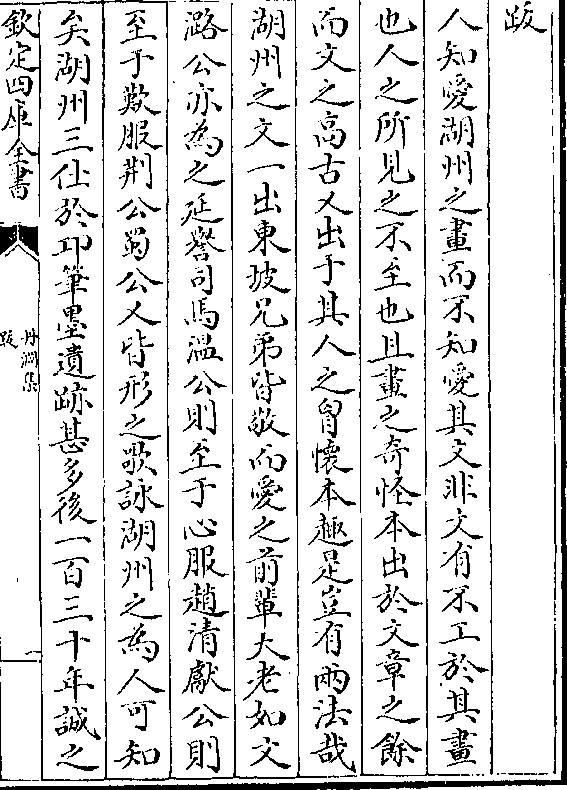 跋
人知愛湖州之畫而不知愛其文非文有不工於其畫
也人之所見之不至也且畫之奇怪本出於文章之餘
而文之高古又出于其人之胷懷本趣是豈有兩法哉
湖州之文一出東坡兄弟皆敬而愛之前輩大老如文
潞公亦為之延譽司馬溫公則至于心服趙清獻公則
至于歎服荆公蜀公又皆形之歌詠湖州之為人可知
矣湖州三仕於邛筆墨遺跡甚多後一百三十年誠之
欽定四庫全書
丹淵集
跋
一